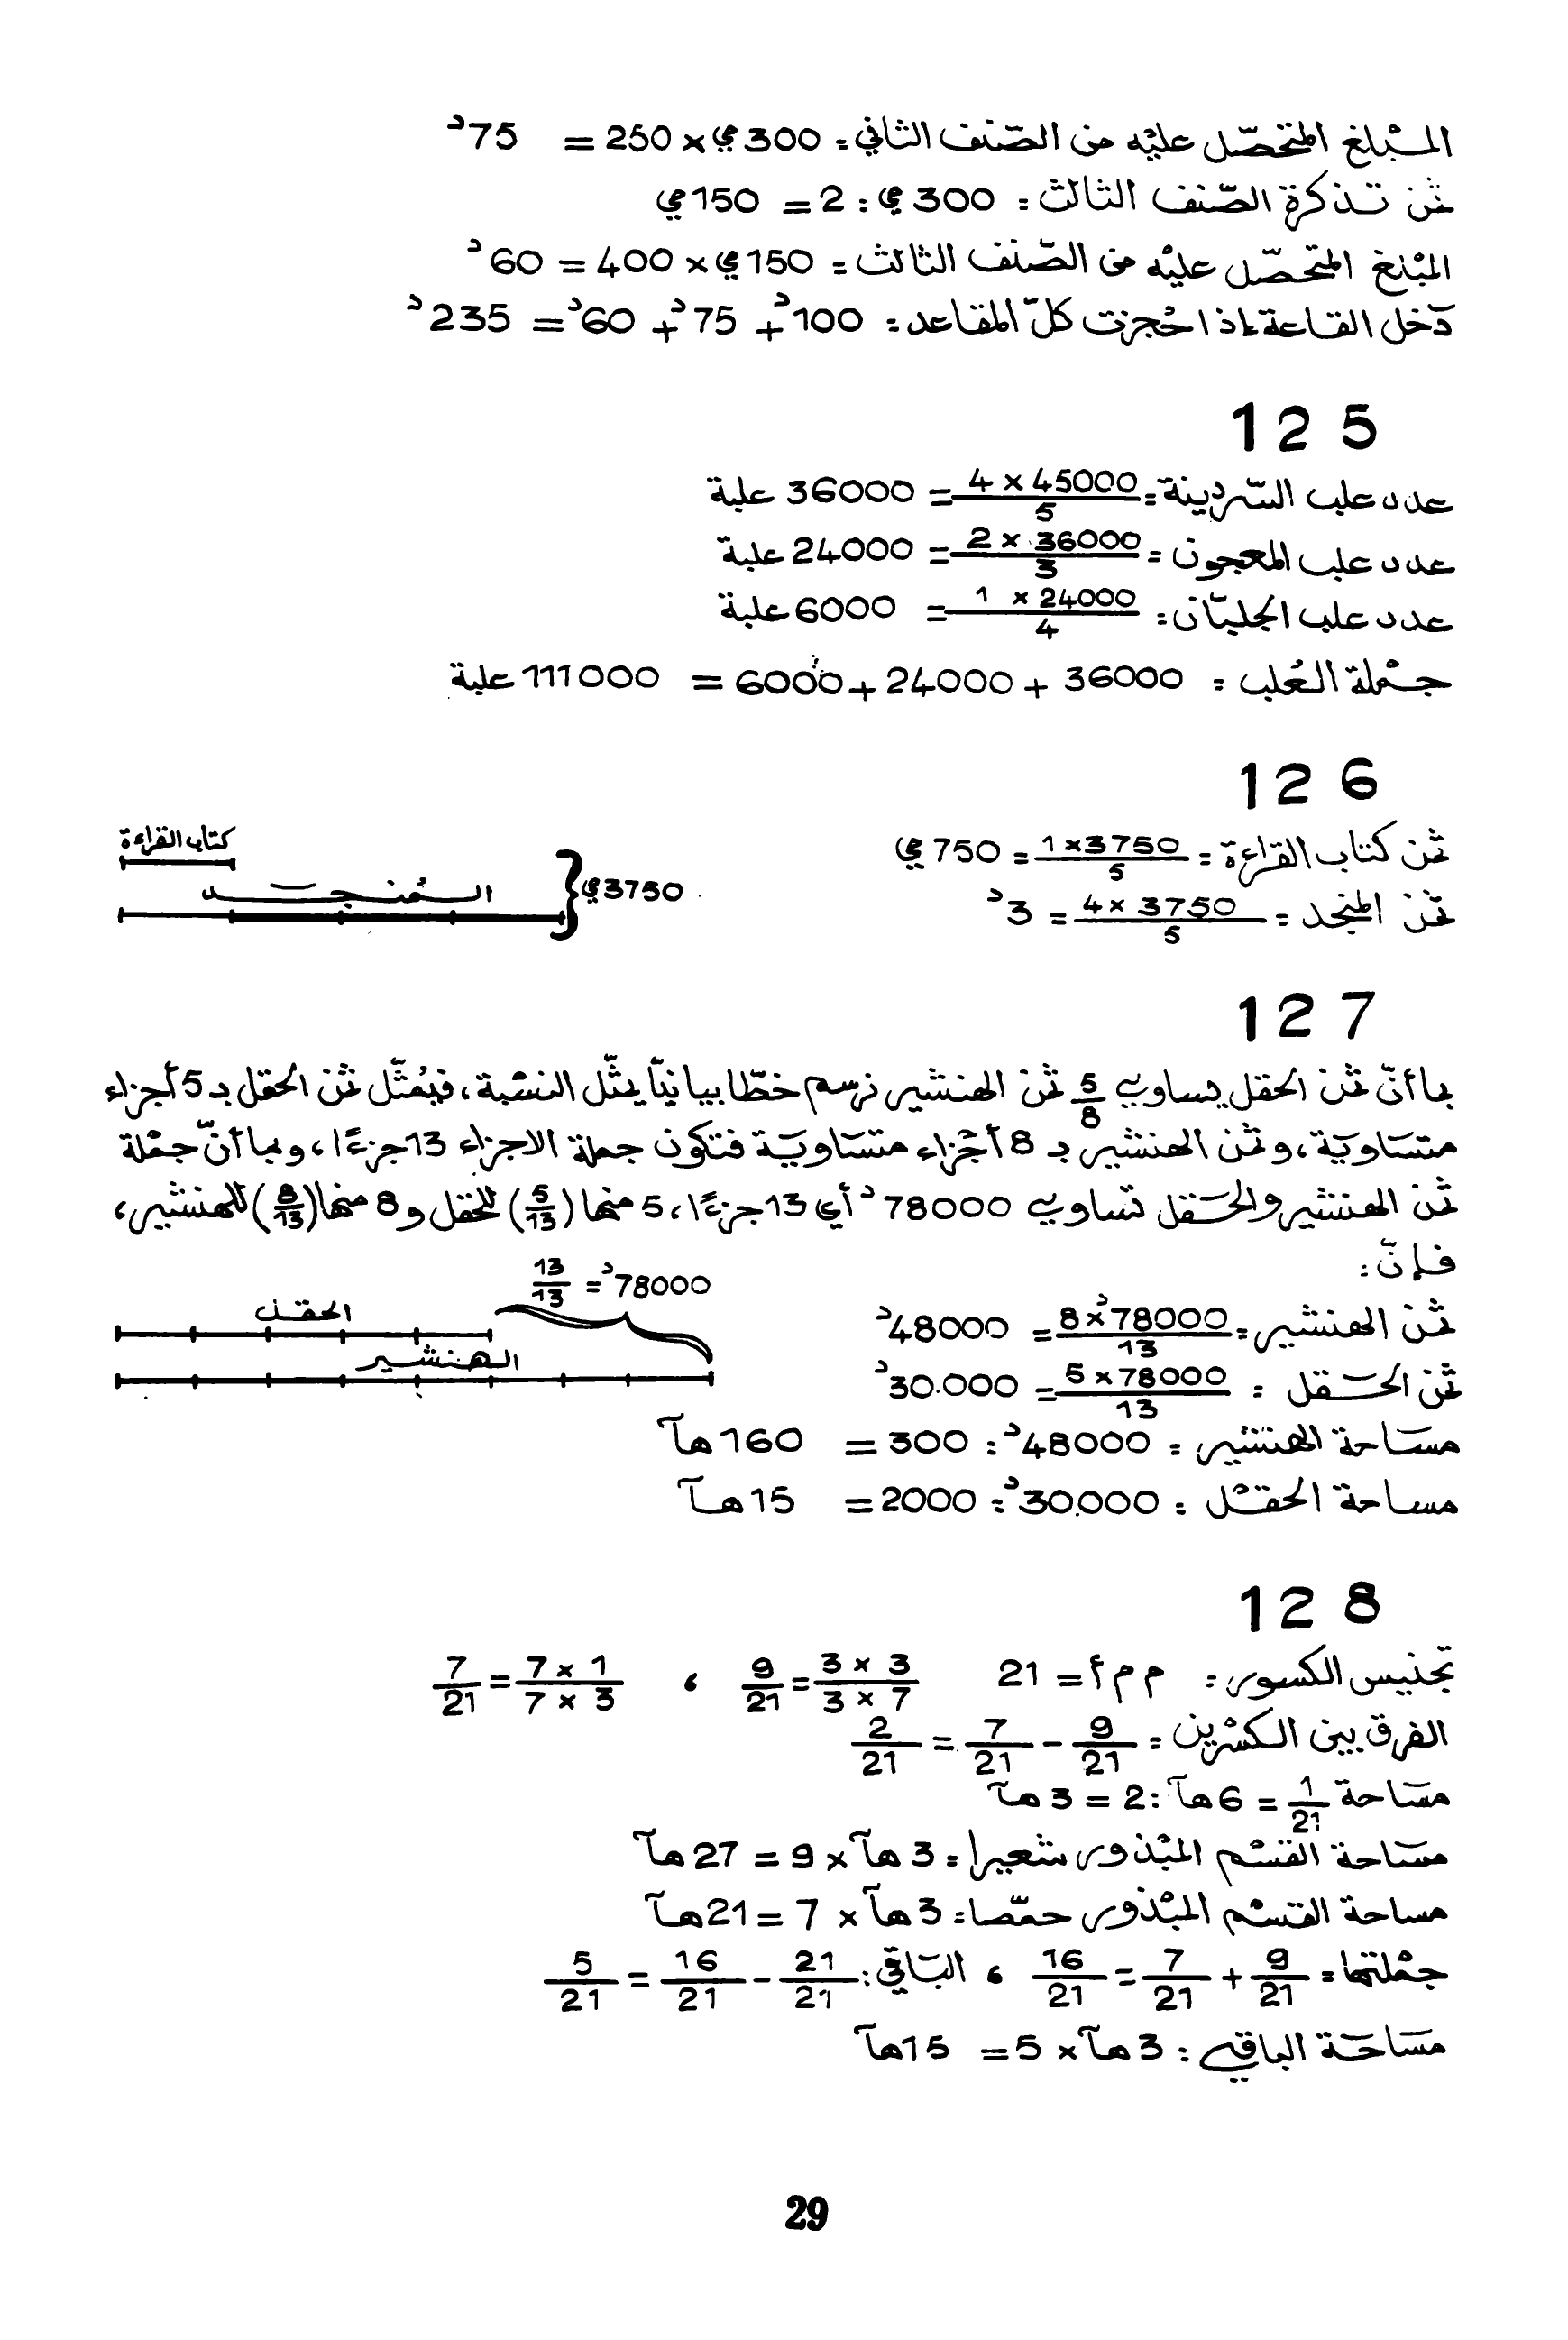 المبْلغ المتحصّل عليْه من الصّنف الثاني: 300ي × 250 = 75د
ثمن تذكرة الصّنف الثالث: 300ي : 2 = 150ي
المبْلغ المتحصّل عليْه من الصّنف الثالث: 150ي × 400 = 60د
دَخل القاعة إذا احُجزت كلّ المقاعد: 100د + 75د + 60د = 235د
125
عدد علب السّردينة: 4 × 45000 / 5 = 36000 علبة
عدد علب المعجون: 2 × 36000 / 3 = 24000 علبة
عدد علب الجلبّان: 1 × 24000 / 4 = 6000 علبة
جمْلة العُلب: 36000 + 24000 + 6000 = 111000 علبة
126
ثمن كتاب القراءة: 1 × 3750 / 5 = 750 ي
ثمن المنجد: 4 × 3750 / 5 = 3د
كتاب القراءة
المُنجد
3750ي
127
بما أنّ ثمن الحقل يساوي 5/8 ثمن الهنشير نرسم خطّا بيانيّا يمثّل النسْبة، فيُمثّل ثمن الحقل بـ 5 أجزاء
متسَاويَة، وثمن الهنشير بـ 8 أجْزاء متسَاويَة فتكون جملة الاجزاء 13 جزءًا، وبما أنّ جمْلة
ثمن الهنشير والحَقل تساوي 78000د أي 13 جزءًا، 5 منها (5/13) للحقل و 8 منها (8/13) للهنشير،
فإنّ:
ثمن الهنشير: 8 × 78000د / 13 = 48000د
ثمن الحَقل: 5 × 78000 / 13 = 30.000د
13/13 = 78000د
الحقل
الهنشير
مسَاحة الهنشير: 48000د : 300 = 160 هآ
مساحة الحقْل: 30.000د : 2000 = 15 هآ
128
تجنيس الكسور: م م أ = 21 3 × 3 / 3 × 7 = 9/21 ، 7 × 1 / 7 × 3 = 7/21
الفرق بين الكسْرين: 9/21 - 7/21 = 2/21
مسَاحة 1/21 = 6 هآ : 2 = 3 هآ
مسَاحة القسْم المبْذور شعيرا: 3 هآ × 9 = 27 هآ
مساحة القسْم المبْذور حمّصا: 3 هآ × 7 = 21 هآ
جمْلتها: 9/21 + 7/21 = 16/21 ، البَاقي: 21/21 - 16/21 = 5/21
مسَاحَة الباقي: 3 هآ × 5 = 15 هآ
29